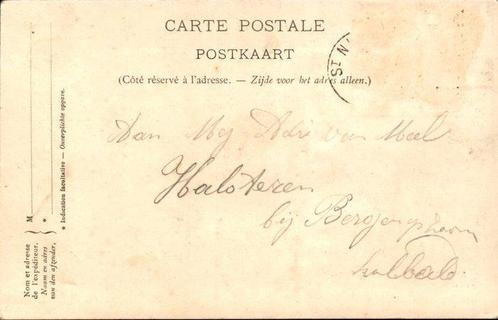 CARTE POSTALE
POSTKAART
(Côté réservé à l'adresse. — Zijde voor het adres alleen.)
ST N
Aan Mej Adri van Meel
Halsteren
bij Bergenopzoom
M
*
Nom et adresse
de l'expéditeur.
Naam en adres
van den afzender.
* Indication facultative — Onverplichte opgave.